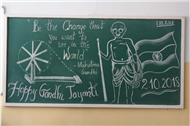 "Be the Change that
you want to
see in the
World"
- Mahatma
Gandhi
Happy Gandhi Jayanti
2.10.2013